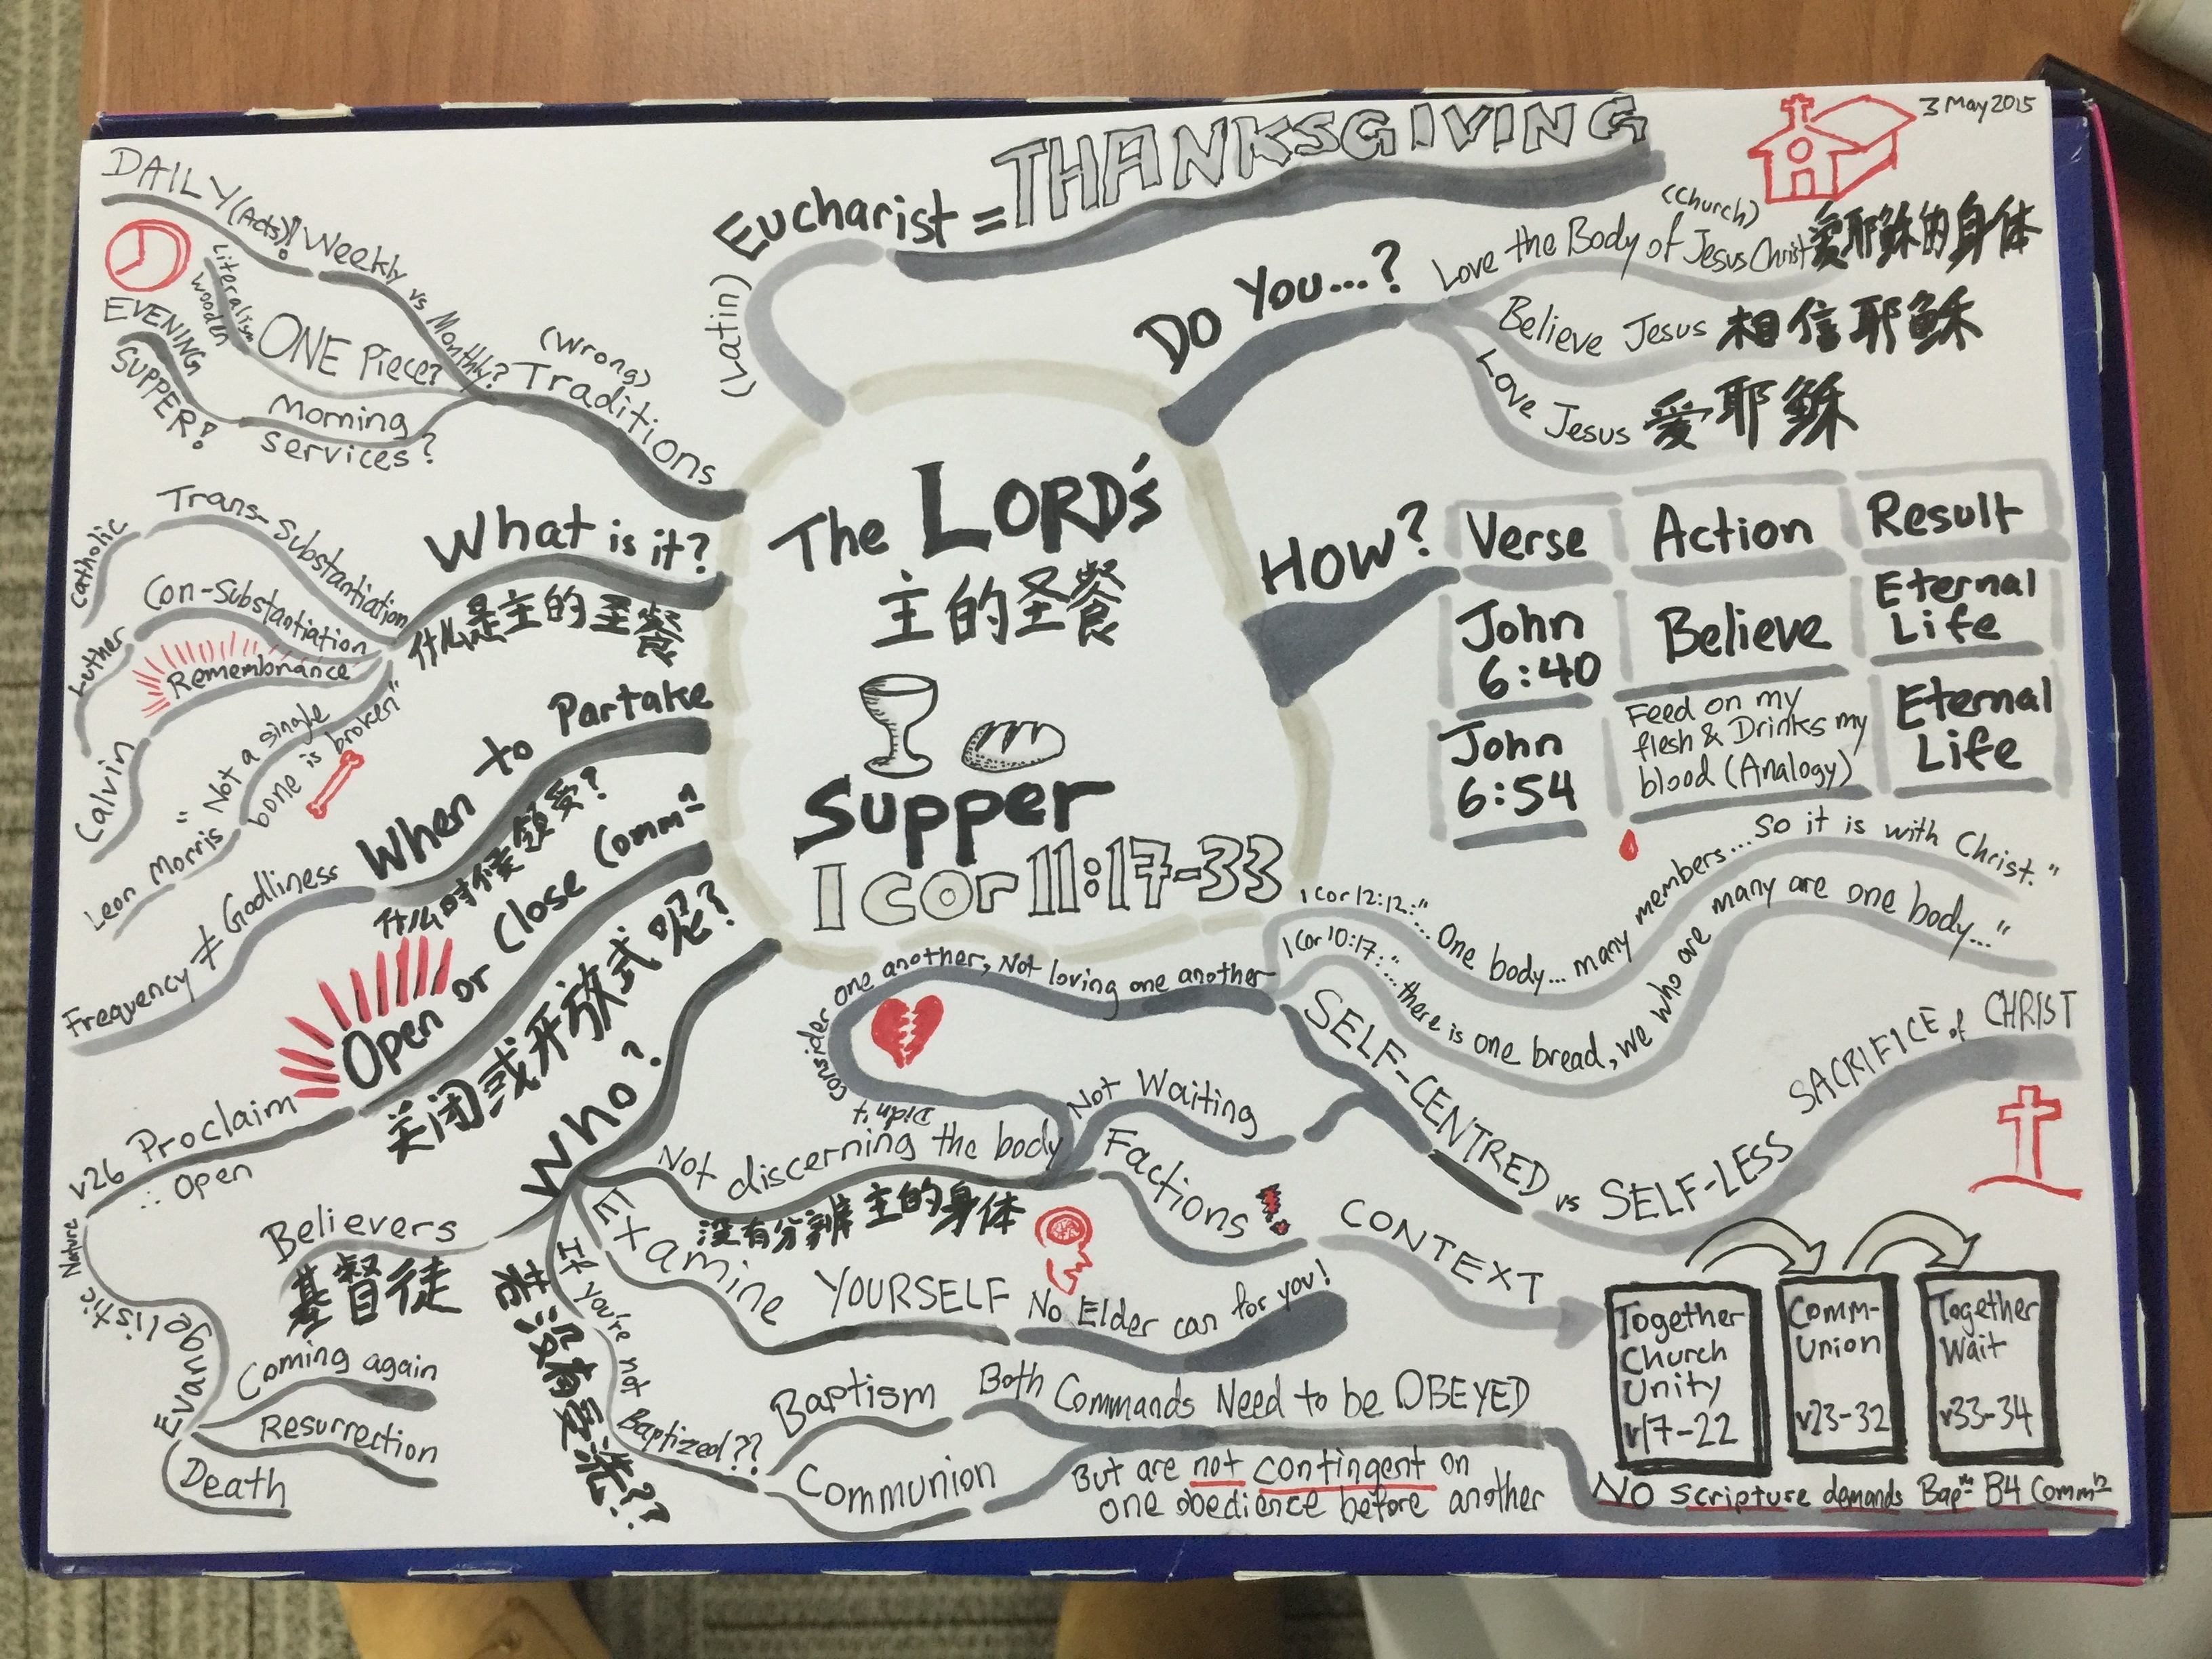 3 May 2015
The LORD's
主的圣餐
Supper
1 Cor 11:17-33
(Latin)
Eucharist = THANKSGIVING
Do You...?
(Church)
Love the Body of Jesus Christ 爱耶稣的身体
Believe Jesus 相信耶稣
Love Jesus 爱耶稣
How?
Verse Action Result
John 6:40 Believe Eternal Life
John 6:54 Feed on my flesh & Drinks my blood (Analogy) Eternal Life
1 Cor 12:12: "... One body... many members... So it is with Christ."
1 Cor 10:17: "... there is one bread, we who are many are one body..."
(Wrong)
Traditions
DAILY (Acts)! Weekly vs Monthly?
Literalism
wooden
ONE Piece?
Morning
services?
EVENING
SUPPER!
What is it?
什么是主的圣餐
Trans-Substantiation
Catholic
Con-Substantiation
Luther
Remembrance
Calvin
"Not a single
bone is broken"
Leon Morris
When to Partake
什么时候领受?
Frequency ≠ Godliness
Open or Close Comm-n
关闭或开放式呢?
v26 Proclaim
∴ Open
Evangelistic Nature
Coming again
Resurrection
Death
Who?
Believers
基督徒
Not discerning the body
没有分辨主的身体
Didn't consider one another, Not loving one another
Not Waiting
Factions
SELF-CENTRED vs SELF-LESS SACRIFICE of CHRIST
CONTEXT
Together
Church
Unity
v17-22
Comm-
Union
v23-32
Together
Wait
v33-34
Examine YOURSELF
No Elder can for you!
If you're not Baptized??
若没有受洗??
Baptism
Communion
Both Commands Need to be OBEYED
But are not contingent on
one obedience before another
No scripture demands Bap-m B4 Comm-n